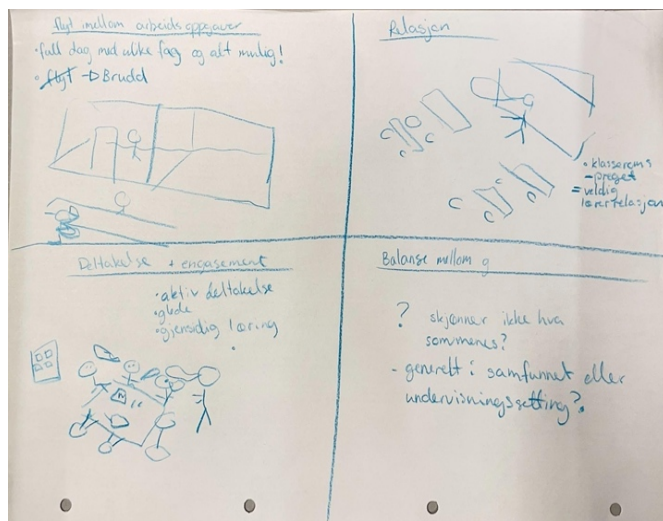 flyt mellom arbeidsoppgaver
• full dag med ulike fag og alt mulig!
• flyt → Brudd
Relasjon
• klasseroms
- preget
= veldig
lærerrelasjon
Deltakelse + engasement
• aktiv deltakelse
• glede
• gjensidig læring
Balanse mellom g
? skjønner ikke hva
sommenes?
- generelt i samfunnet eller
undervisningssetting?